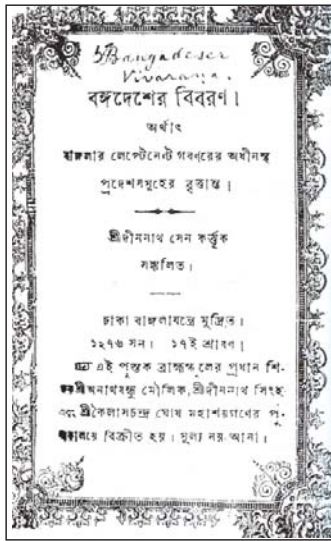 Bangadeser
Vivarana.
বঙ্গদেশের বিবরণ।
অর্থাৎ
বাঙ্গলার লেপ্টেনেন্ট গবর্ণরের অধীনস্থ
প্রদেশসমূহের বৃত্তান্ত।
শ্রীদীননাথ সেন কর্ত্তৃক
সঙ্কলিত।
ঢাকা বাঙ্গলাযন্ত্রে মুদ্রিত।
১২৭৬ সন। ১৭ই শ্রাবণ।
এই পুস্তক ব্রাহ্মস্কুলের প্রধান শি-
শ্রীঅনাথবন্ধু মৌলিক, শ্রীদীননাথ সিংহ
এবং শ্রীকৈলাসচন্দ্র ঘোষ মহাশয়গণের পু-
স্তকালয়ে বিক্রীত হয়। মূল্য নয় আনা।